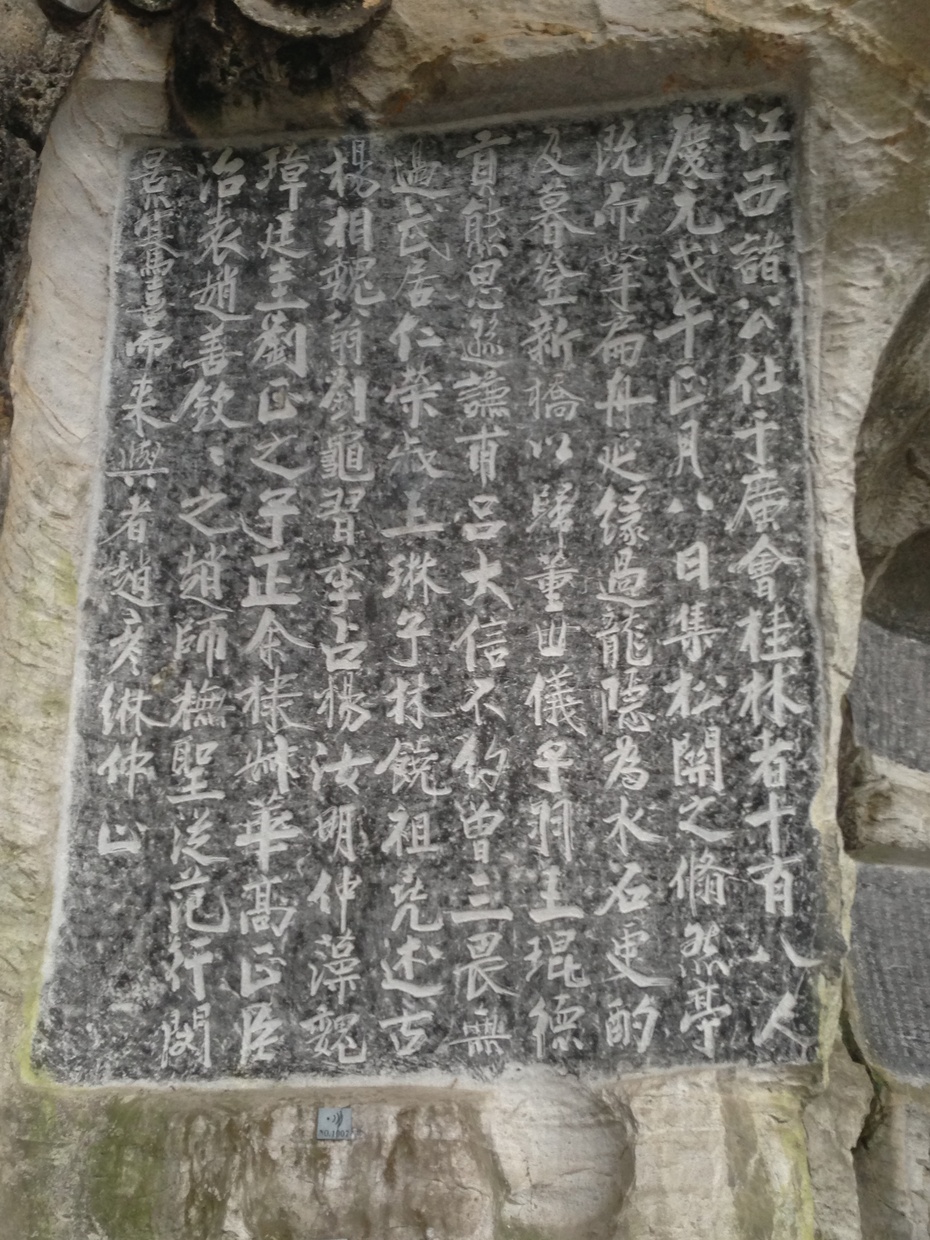 江西諸公仕于廣會桂林者十有八人
慶元戊午正月八日集松關之翛然亭
既而拏扁舟延緣過龍隱為水石更酌
及暮登新橋以歸董世儀子羽王琨德
貢熊思遜謙甫呂大信不約曾三畏無
過武居仁榮成王琳子林饒祖堯述古
楊相魏翁劉龜習季占楊汝明仲藻魏
璋廷圭劉正之子正余棣華高正臣
治表趙善欽〻之趙師橅聖從范行閔
景騫喜而来與者趙彥綝仲山